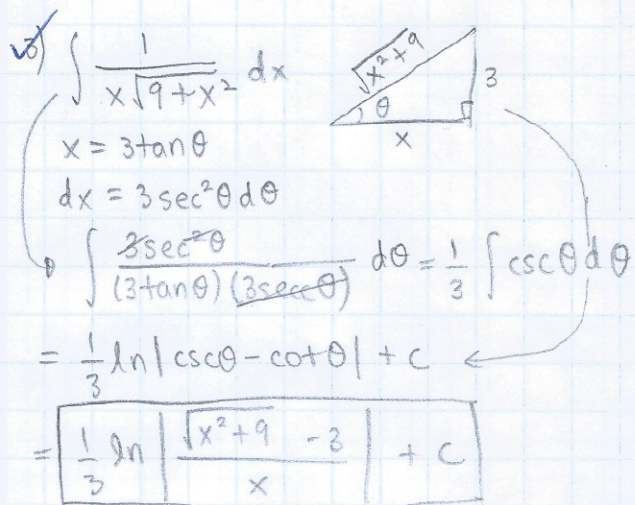 3) ∫ 1 / (x√(9+x²)) dx
√(x²+9)
3
θ
x
x = 3tanθ
dx = 3sec²θdθ
∫ 3sec²θ / ((3tanθ)(3secθ)) dθ = 1/3 ∫ cscθdθ
= 1/3 ln|cscθ - cotθ| + c
= 1/3 ln| (√(x²+9) - 3) / x | + c